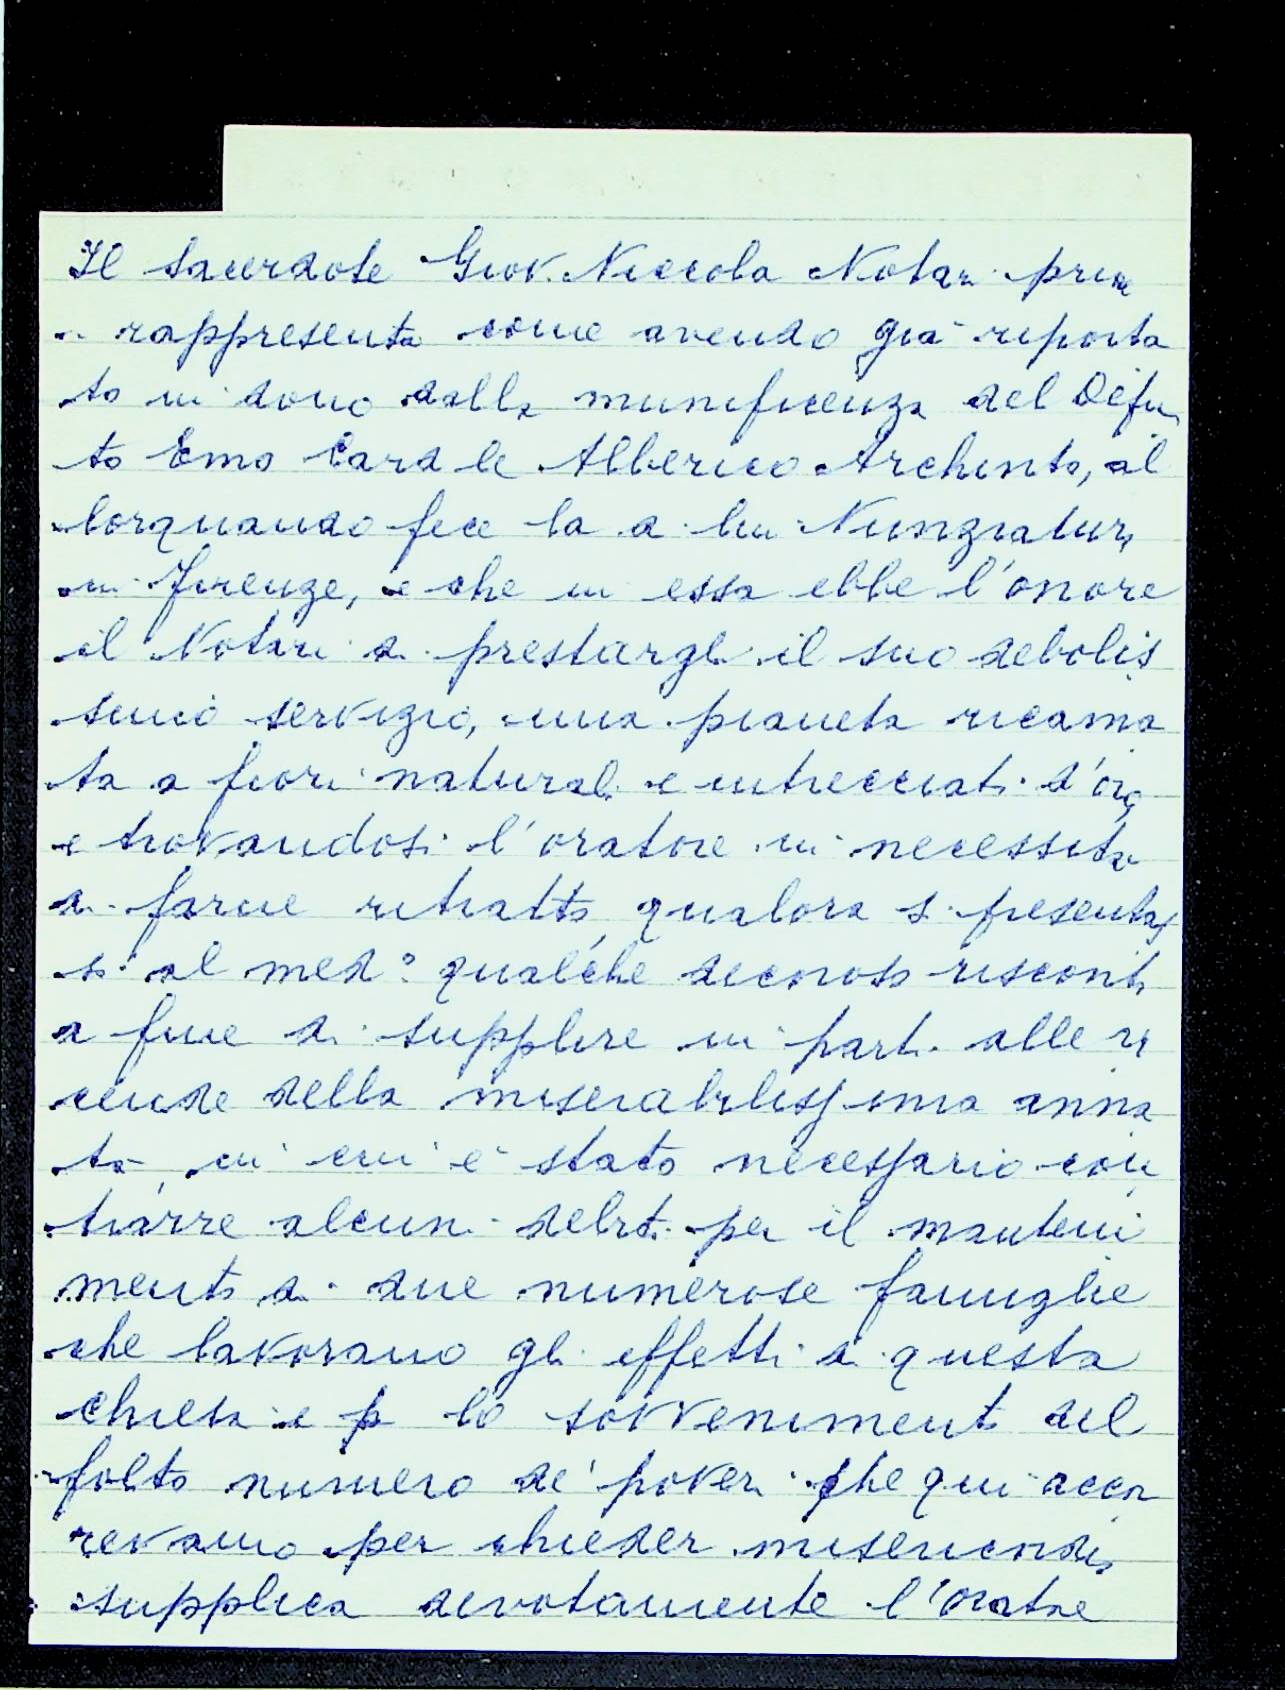 Il Sacerdote Giov. Niccola Notari prim
rappresenta come avendo già riporta
to in dono dalla munificenza del Defun
to Emo Card le Alberico Archinto, al
lorquando fece la di lui Nunziatura
in Firenze, e che in essa ebbe l'onore
il Notari di prestargli il suo debolis
simo servizio, una pianeta ricama
ta a fiori naturali e intrecciati d'oro,
e trovandosi l'oratore in necessità
di farne ritratto qualora si presentas
si al med.º qualche decoroso riscontro
a fine di supplire in parte alle vi
cende della miserabilissima anna
ta, in cui è stato necessario con
trarre alcuni debiti per il manteni
mento di due numerose famiglie
che lavorano gli effetti di questa
chiesa e p lo sovvenimento del
folto numero de' poveri che qui accor
revano per chieder misericordia,
supplica devotamente l'Oratore